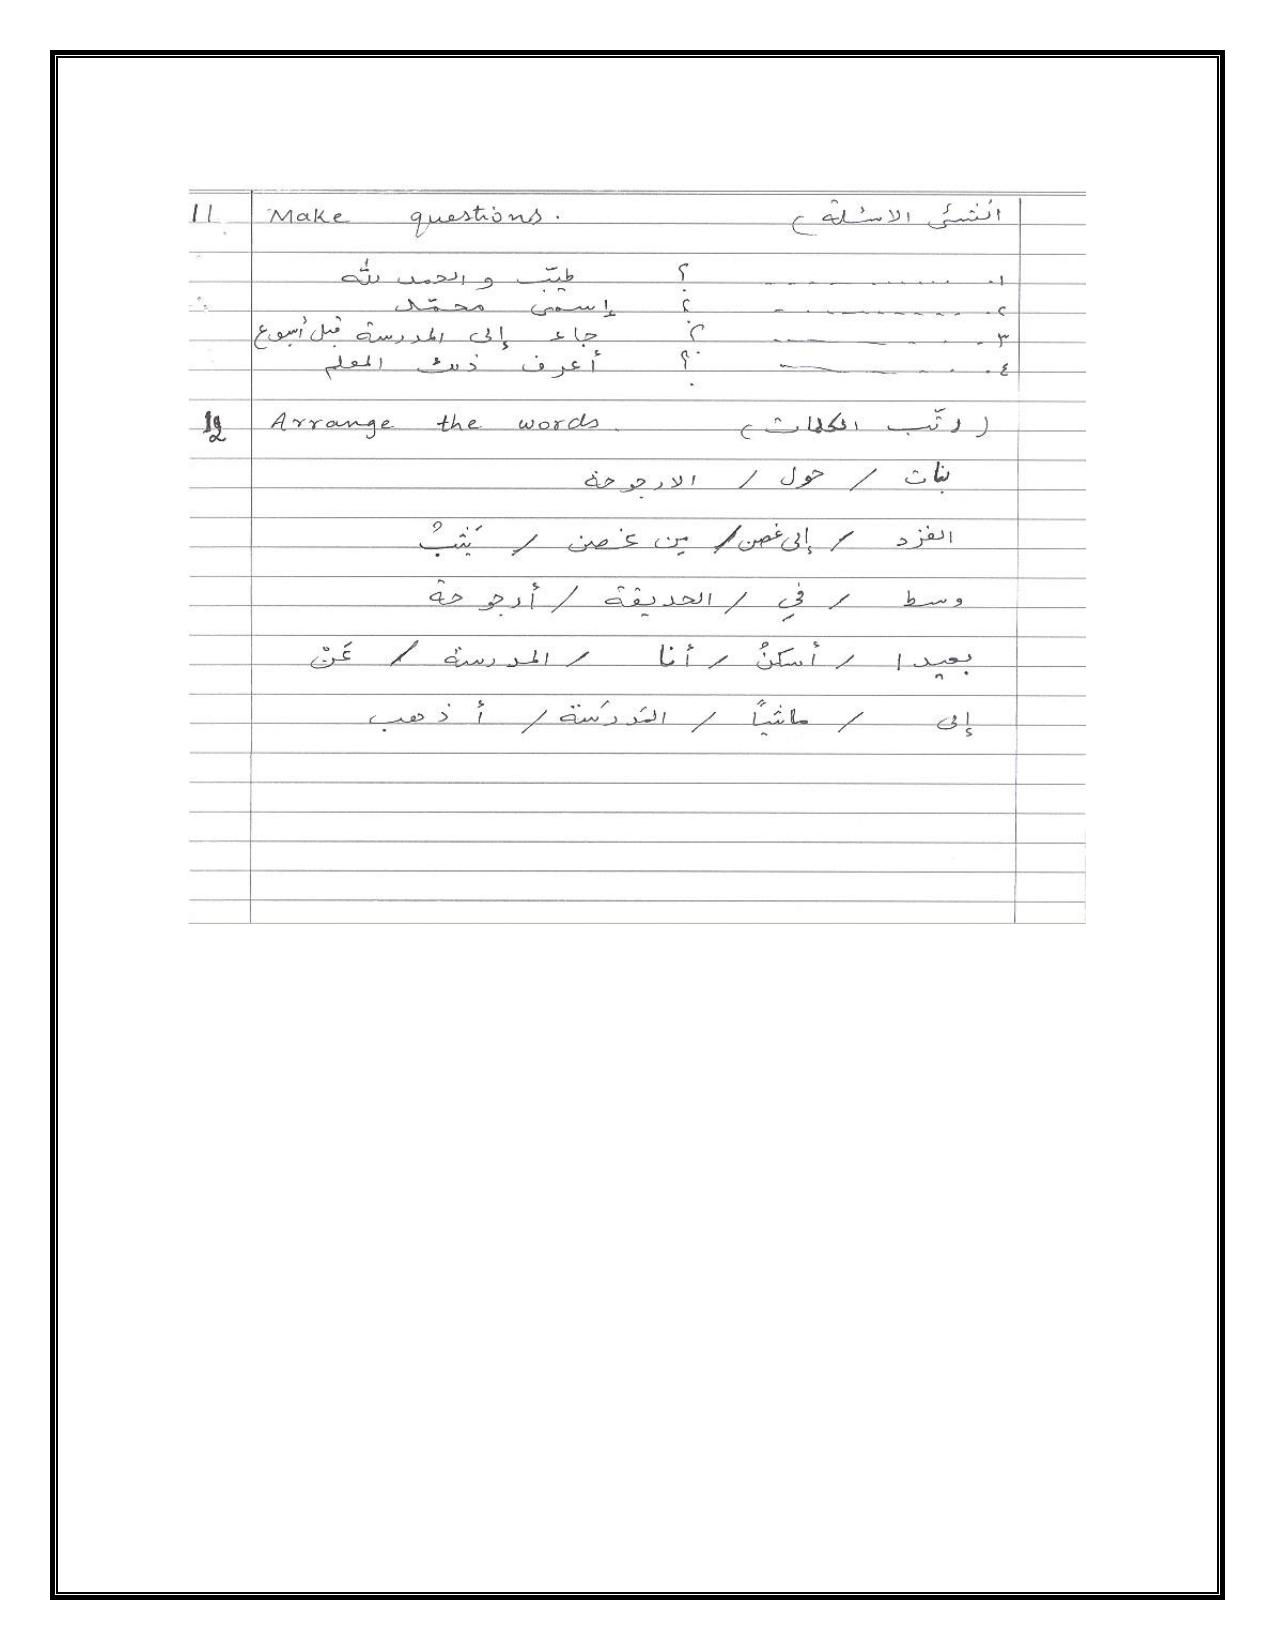 11 Make questions. أنشئ الاسئلة)
١. ........... ؟ طيّب والحمد لله
٢. ........... ؟ إسمى محمّد
٣. ........... ؟ جاء إلى المدرسة قبل أسبوع
٤. ........... ؟ أعرف ذلك المعلم
12 Arrange the words. (رتّب الكلمات)
بنات / حول / الارجوحة
القرد / إلى غصن / من غصن / يَثِبُ
وسط / في / الحديقة / أرجوحة
بعيدا / أسكنُ / أنا / المدرسة / عَنْ
إلى / ماشياً / المَدرَسة / أذهب